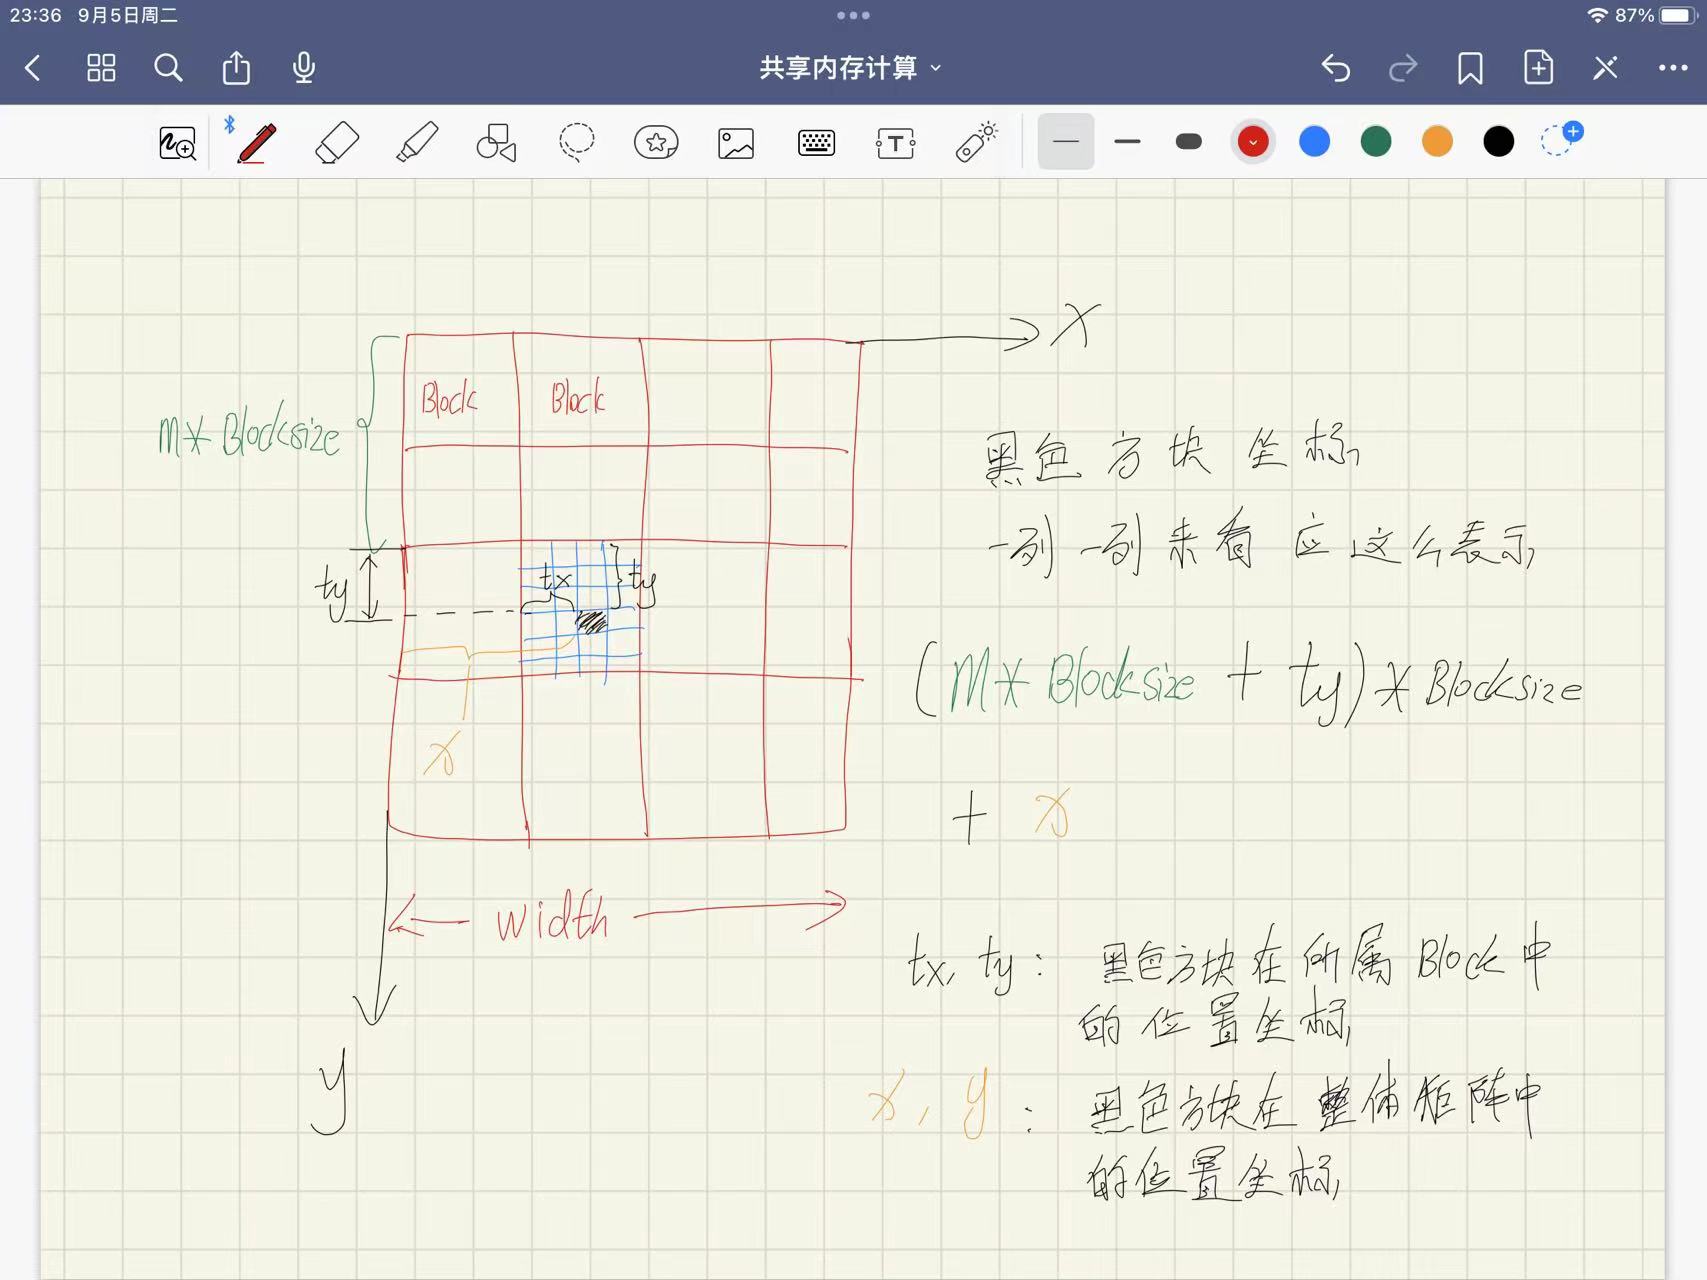 23:36 9月5日周二
87%
共享内存计算
X
Block Block
M* Blocksize
黑色方块坐标
一列一列来看应这么表示
ty
tx
ty
(M* Blocksize + ty)* Blocksize
x
+ x
width
tx, ty: 黑色方块在所属Block中
的位置坐标
y
x, y: 黑色方块在整体矩阵中
的位置坐标